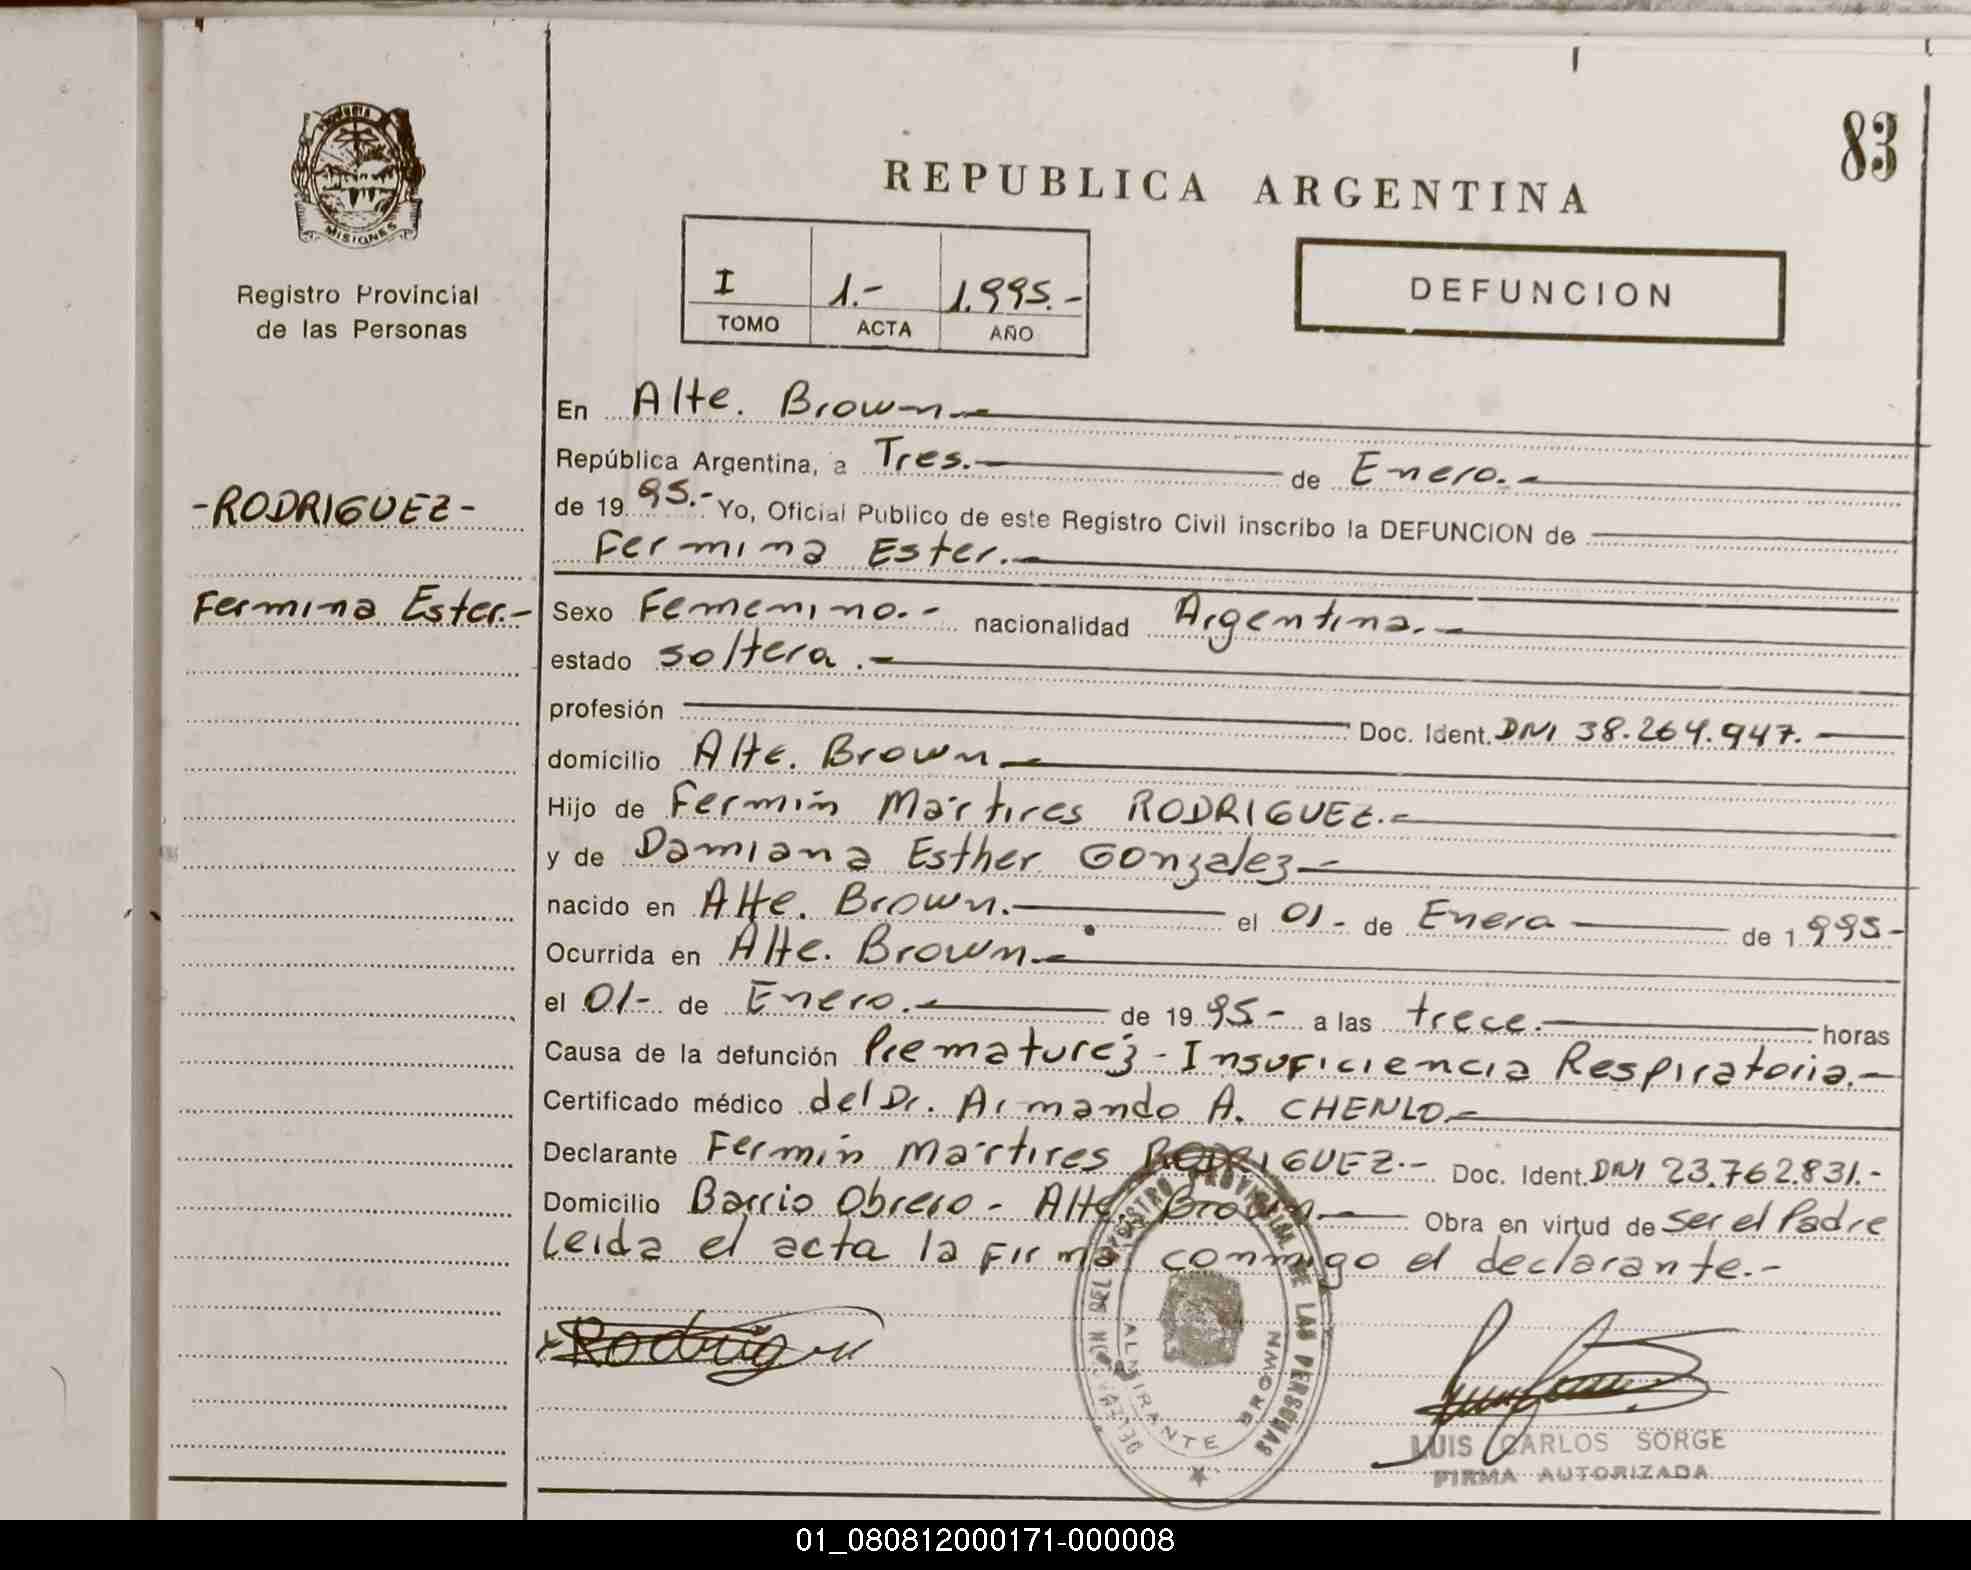 Provincia
MISIONES
Registro Provincial
de las Personas
-RODRIGUEZ-
Fermina Ester.-
83
REPUBLICA ARGENTINA
I 1.- 1.995.-
TOMO ACTA AÑO
DEFUNCION
En Alte. Brown.-
República Argentina, a Tres.- de Enero.-
de 19 95.- Yo, Oficial Publico de este Registro Civil inscribo la DEFUNCION de
Fermina Ester.-
Sexo Femenino.- nacionalidad Argentina.-
estado soltera.-
profesión Doc. Ident. DNI 38.264.947.
domicilio Alte. Brown.-
Hijo de Fermín Mártires RODRIGUEZ.-
y de Damiana Esther Gonzalez-
nacido en Alte. Brown.- el 01- de Enero de 1.995-
Ocurrida en Alte. Brown.-
el 01- de Enero.- de 19 95- a las trece.- horas
Causa de la defunción Prematuréz - Insuficiencia Respiratoria.-
Certificado médico del Dr. Armando A. CHENLO-
Declarante Fermín Mártires RODRIGUEZ.- Doc. Ident. DNI 23.762.831.-
Domicilio Barrio Obrero - Alte. Brown.- Obra en virtud de ser el Padre
Leida el acta la firma conmigo el declarante.-
Rodrig
DEL REGISTRO PROVINCIAL DE LAS PERSONAS
ALMIRANTE BROWN
LUIS CARLOS SORGE
FIRMA AUTORIZADA
01_080812000171-000008